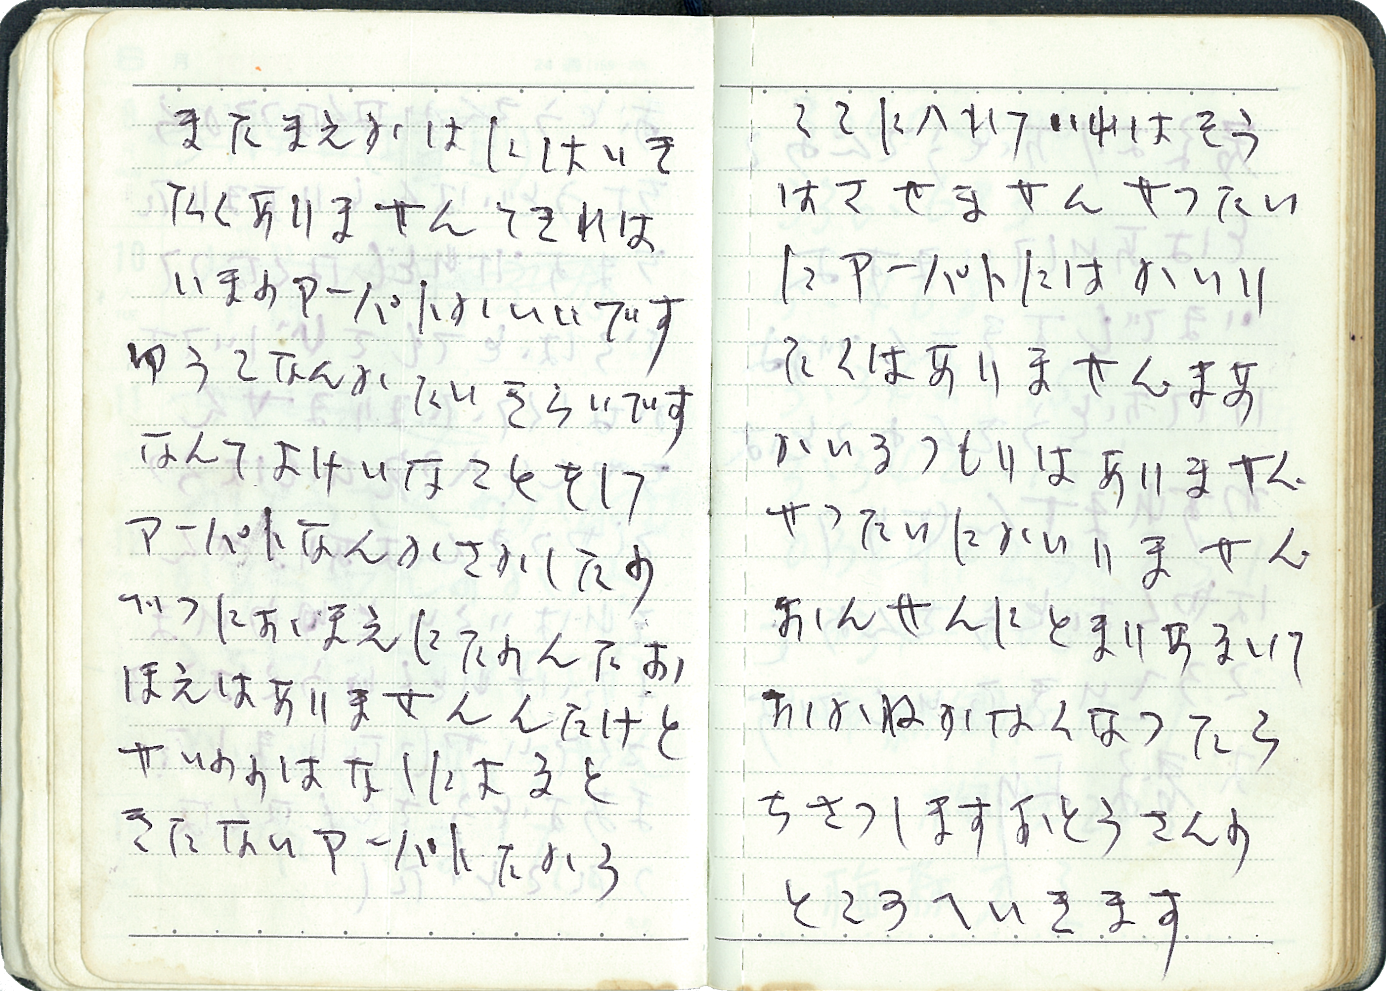 またまえかはしにはいき
たくありませんてきれは
いまのアーパトがいいです
ゆうこなんかたいきらいです
なんてよけいなことをして
アーパトなんかさかしたの
べつにおほえにたのんたお
ほえはありませんんたけと
せいののはなしによると
きたないアーパトたから
ここに入れていればそう
はさせません せったい
にアーパトにはかいり
たくはありませんまあ
かいるつもりはありません
せったいにかいりません
おんせんにとまりあるいて
おかねがなくなったら
ちさつしますおとうさんの
ところへいきます